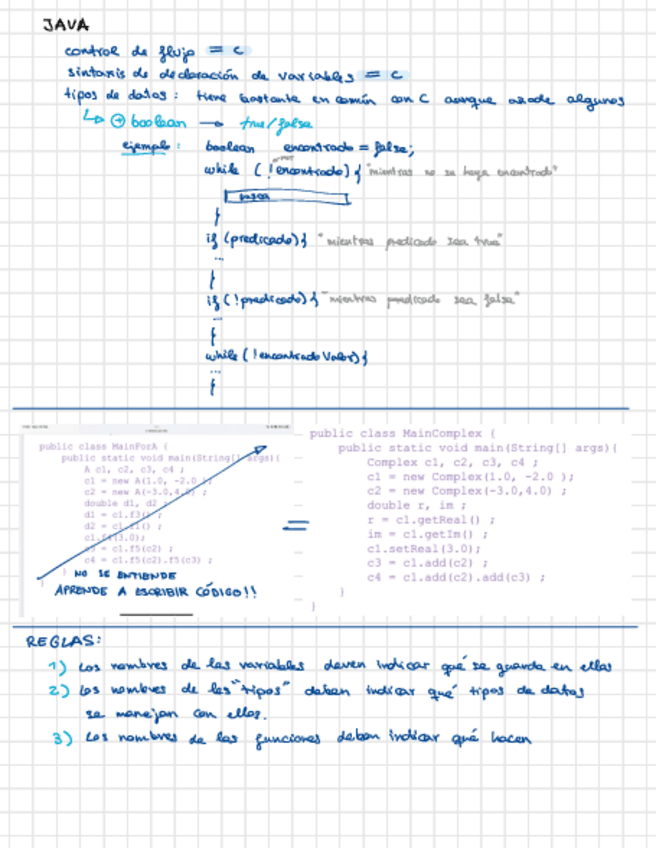 JAVA
control de flujo = C
sintaxis de declaración de variables = C
tipos de datos: tiene bastante en común con C aunque añade algunos
↳ ⊕ boolean → true/false
ejemplo: boolean encontrado = false;
not
while (!encontrado) { "mientras no se haya encontrado"
busca
}
if (predicado) { "mientras predicado sea true"
...
}
if (!predicado) { "mientras predicado sea false"
...
}
while (!encontradoValor) {
...
}
public class MainForA {
public static void main(String[] args){
A c1, c2, c3, c4 ;
c1 = new A(1.0, -2.0 );
c2 = new A(-3.0,4.0) ;
double d1, d2 ;
d1 = c1.f3() ;
d2 = c1.f1() ;
c1.f4(3.0);
c3 = c1.f5(c2) ;
c4 = c1.f5(c2).f5(c3) ;
}
}
NO SE ENTIENDE
APRENDE A ESCRIBIR CÓDIGO!!
=
public class MainComplex {
public static void main(String[] args){
Complex c1, c2, c3, c4 ;
c1 = new Complex(1.0, -2.0 );
c2 = new Complex(-3.0,4.0) ;
double r, im ;
r = c1.getReal() ;
im = c1.getIm() ;
c1.setReal(3.0);
c3 = c1.add(c2) ;
c4 = c1.add(c2).add(c3) ;
}
}
REGLAS:
1) Los nombres de las variables deven indicar qué se guarda en ellas
2) Los nombres de los "tipos" deben indicar qué tipos de datos
se manejan con ellos.
3) Los nombres de las funciones deben indicar qué hacen